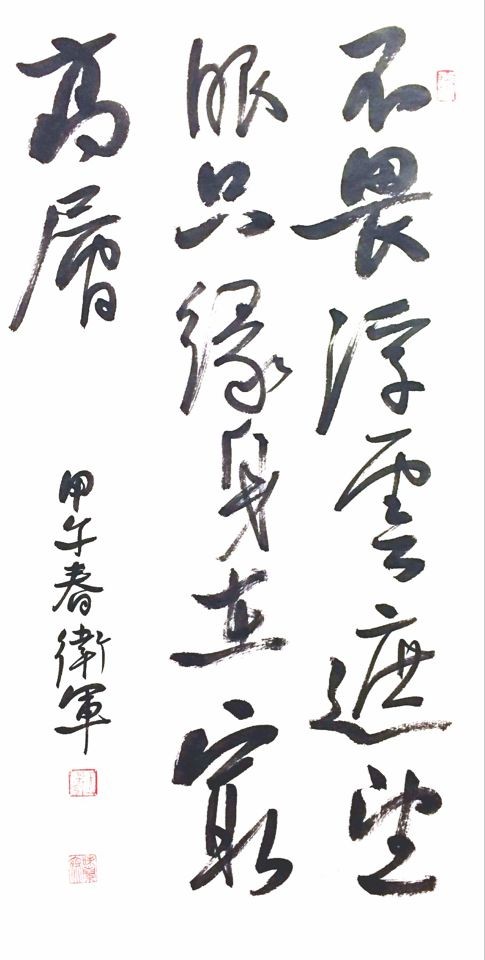 不畏浮雲遮望
眼只緣身在最
高層
甲午春衛軍